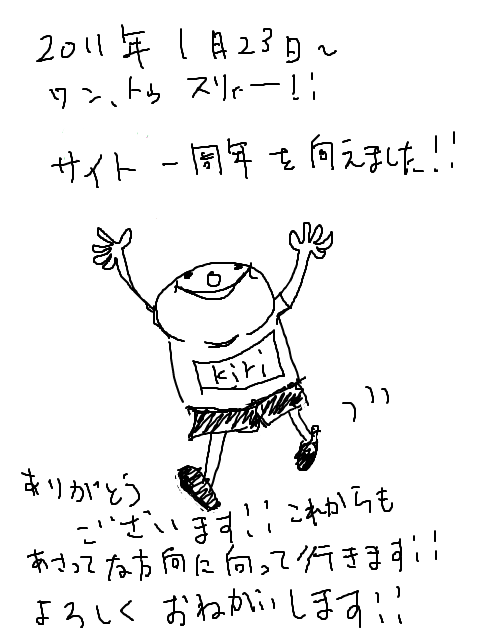 2011年1月23日～
ワン、トゥ スリャー!!
サイト一周年を向えました!!
kiri
ありがとう
ございます!! これからも
あさってな方向に向って行きます!!
よろしくおねがいします!!